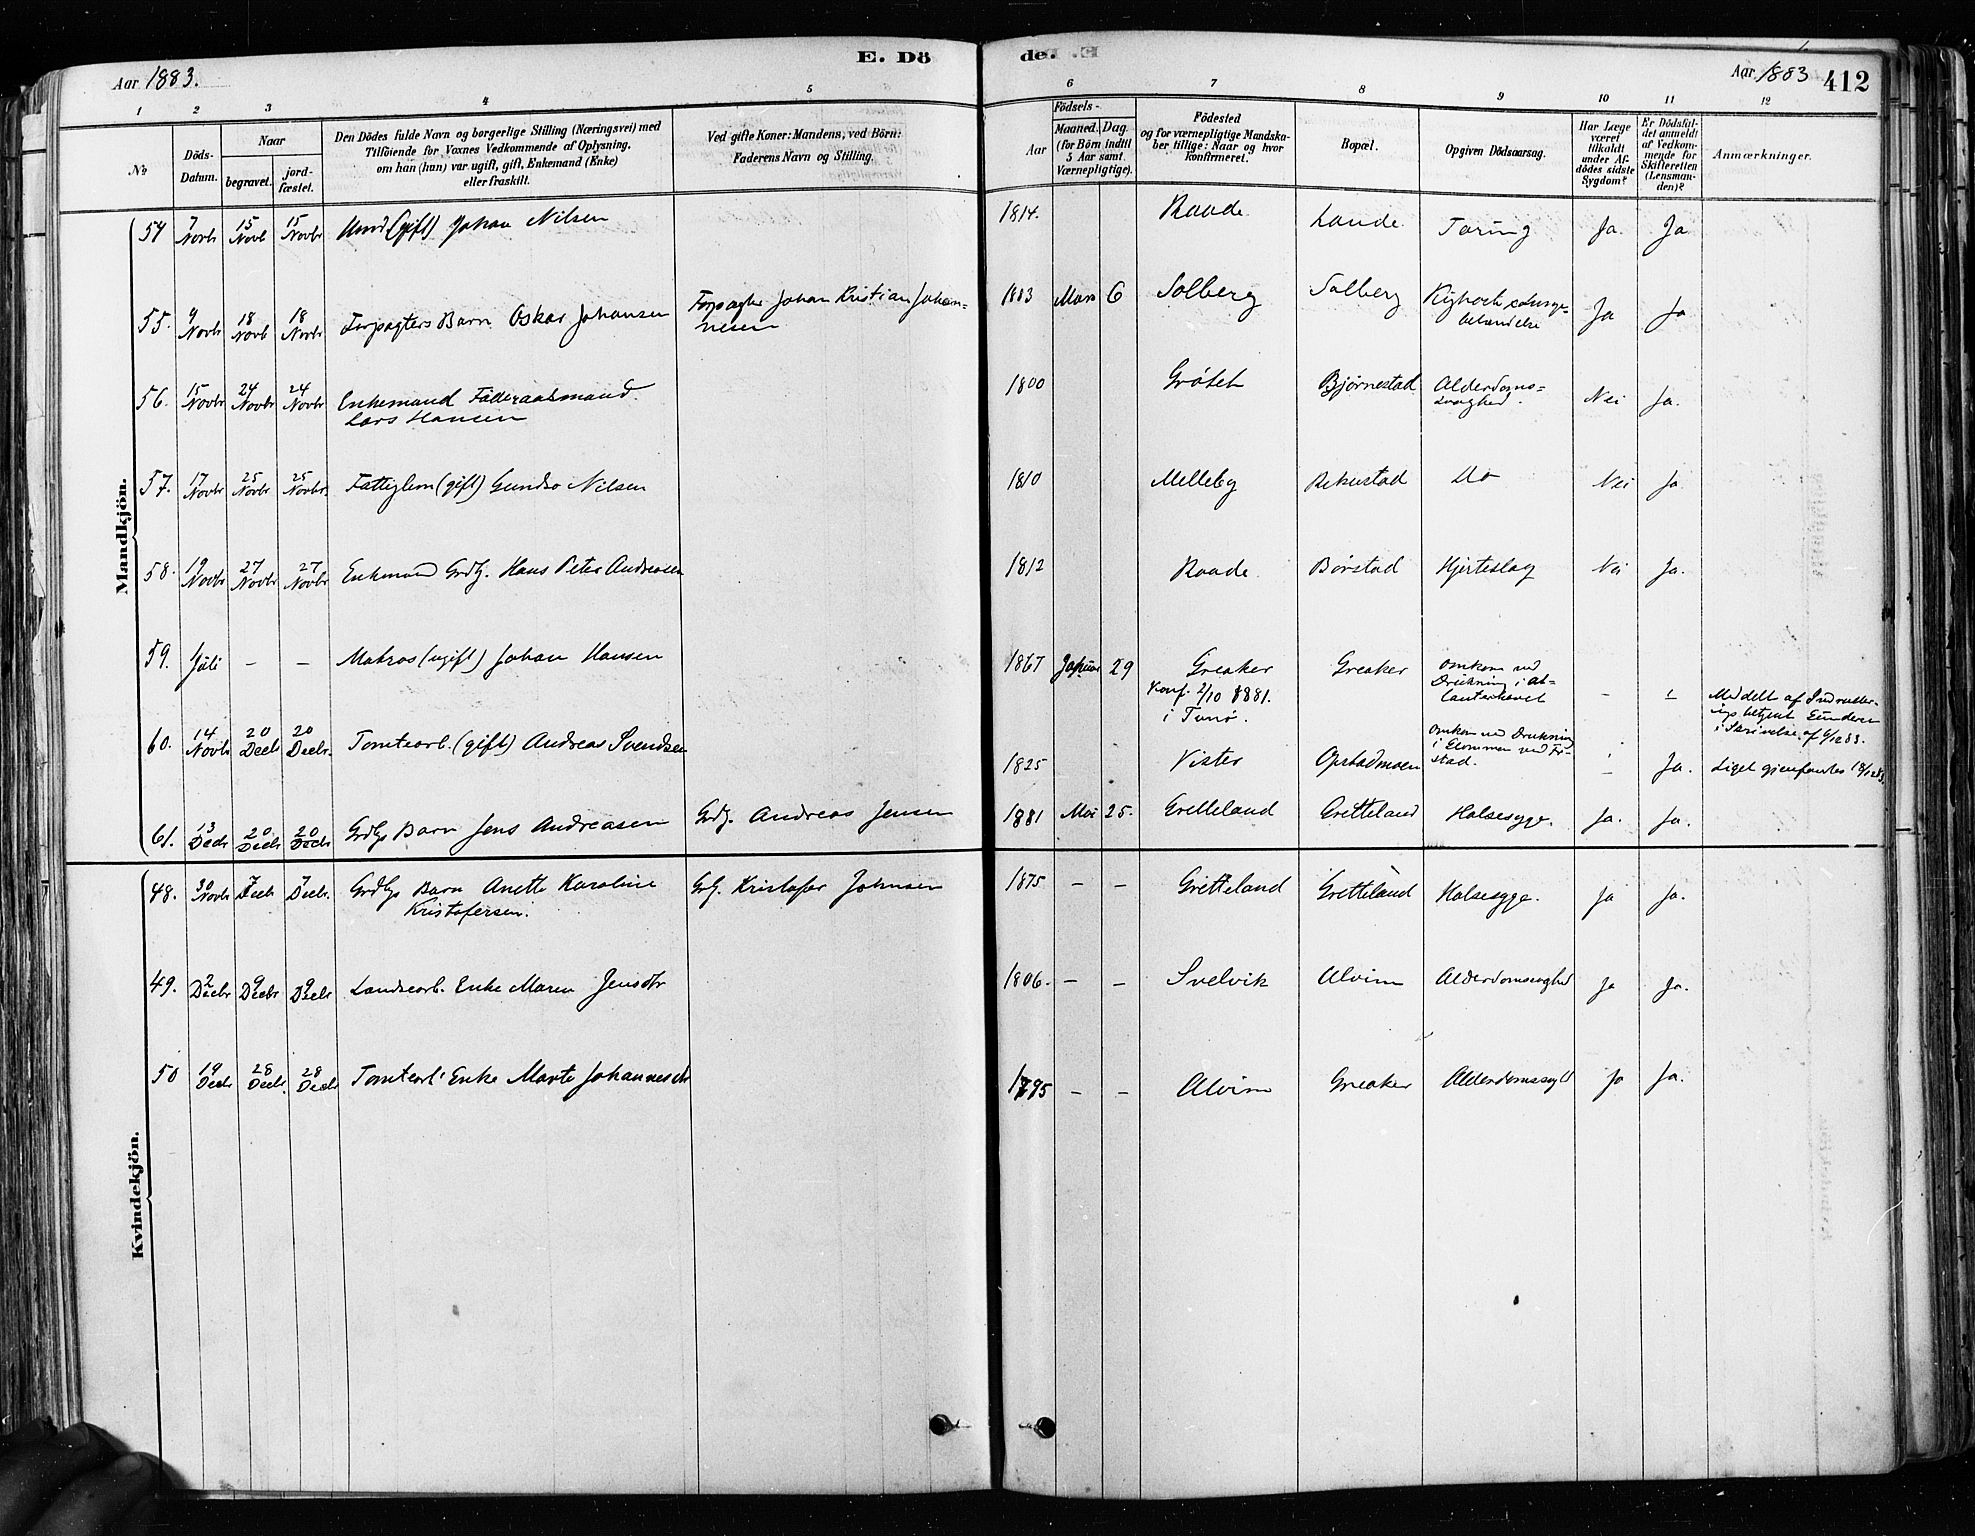 Aar 1883.
E. Dö
de.
Aar 1883
412
1 2 3 4 5 6 7 8 9 10 11 12
No
Döds-Datum.
Naar
begravet.
jord-fæstet.
Den Dödes fulde Navn og borgerlige Stilling (Næringsvei) med
Tilföiende for Voxnes Vedkommende af Oplysning.
om han (hun) var ugift, gift, Enkemand (Enke)
eller fraskilt.
Ved gifte Koner: Mandens, ved Börn:
Faderens Navn og Stilling.
Födsels-
Aar
Maaned. Dag.
(for Börn indtil
5 Aar samt
Værnepligtige).
Födested
og for værnepligtige Mandska-
ber tillige: Naar og hvor
konfirmeret.
Bopæl.
Opgiven Dödsaarsag.
Har Læge
været
tilkaldt
under Af-
dödes sidste
Sygdom?
Er Dödsfal-
det anmeldt
af Vedkom-
mende for
Skifteretten
(Lensman-
den)?
Anmærkninger.
Mandkjön.
54 7 Novbr 15 Novb 15 Novbr (gift) Johan Nilsen 1814. Raade Lande Tæring Ja. Ja
55. 9 Novbr 18 Novb 18 Novbr Forpagters Barn Oskar Johansen Forpagter Johan Kristian Johan-
nesen 1883 Mars 6 Solberg Solberg Kighoste & Lunge-
betændelse Ja Ja
56. 15 Novbr 24 Novbr 24 Novbr Enkemand Föderaadsmand
Lars Hansen 1800 Grötet Bjørnestad Alderdoms-
svaghed. Nei Ja.
57. 17 Novbr 25 Novbr 25 Novbr. Fattiglem (gift) Nilsen 1810 Melleby Rekustad Do Nei Ja
58. 19 Novbr 27 Novbr 27 Novbr Enkemand Grdbr. Hans Peter Andreasen 1812 Raade Börstad Hjerteslag Nei Ja.
59. Juli - - Matros (ugift) Johan Hansen 1867 Januar 29 Greaker
Konf. 2/10 1881.
i Tunö. Greaker Omkom ved
Drukning i At-
lanterhavet - - Meddelt af Indruller-
ings betjent
i Skrivelse af 6/12 83.
60. 14 Novbr 20 Decbr 20 Decbr. Tomtearb. (gift) Andreas Svendsen 1825 Vister Opstadmoen Omkom ved Drukning
i Glommen ved Fr-
stad. - Ja. Liget gjenfandtes
61. 13 Decbr 20 Decbr 20 Decbr Grdbrs Barn Jens Andreasen Grdbr. Andreas Jensen 1881 Mai 25. Gretteland Gretteland Halsesyge. Ja. Ja.
Kvindekjön.
48. 30 Novbr 7 Decbr 7 Decbr. Grdbrs Barn Anette Karoline
Kristofersen. Kristofer Johnsen 1875 - - Gretteland Gretteland Halsesyge. Ja Ja.
49. 2 Decbr 9 Decbr 9 Decbr Landsearb. Enke Maren Jensdtr 1806. - - Svelvik Alvim Alderdomssvaghed Ja Ja.
50 19 Decbr 28 Decbr. 28 Decbr Tomtearb. Enke Marte Johannesdtr 1795 - - Alvim Greaker Ja Ja.